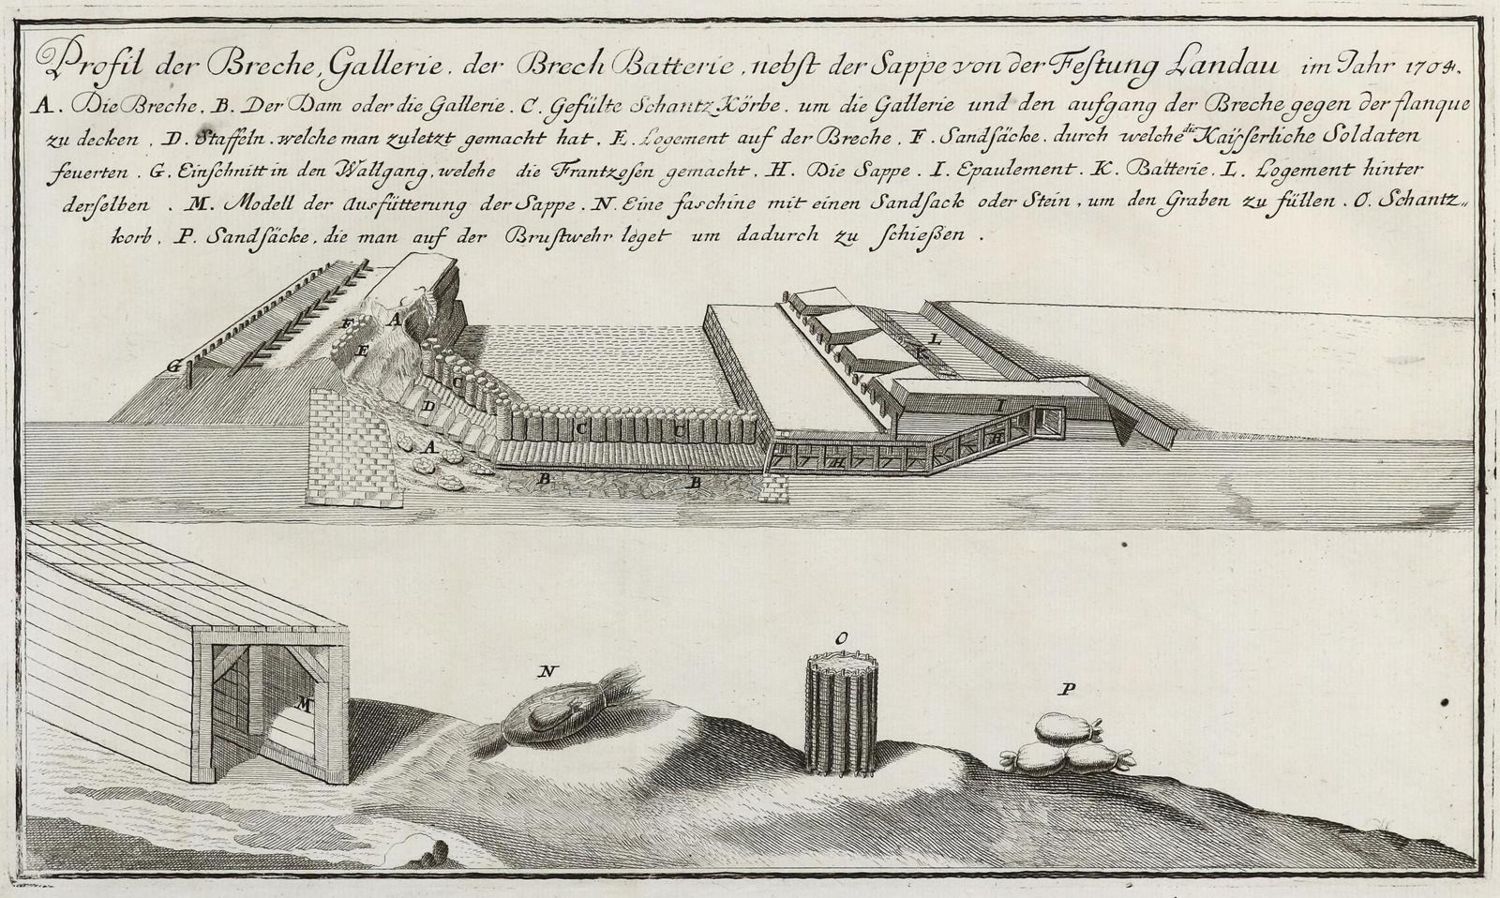 Profil der Breche, Gallerie, der Brech Batterie, nebst der Sappe von der Festung Landau im Jahr 1704.
A. Die Breche. B. Der Dam oder die Gallerie. C. Gefülte Schantz Körbe, um die Gallerie und den aufgang der Breche gegen der flanque
zu decken. D. Staffeln, welche man zuletzt gemacht hat. E. Logement auf der Breche. F. Sandsäcke, durch welche die Kaÿserliche Soldaten
feuerten. G. Einschnitt in den Wallgang, welche die Frantzosen gemacht. H. Die Sappe. I. Epaulement. K. Batterie. L. Logement hinter
derselben. M. Modell der Ausfütterung der Sappe. N. Eine faschine mit einen Sandsack oder Stein, um den Graben zu füllen. O. Schantz„
korb. P. Sandsäcke, die man auf der Brustwehr leget um dadurch zu schießen.
F A
G E L
K
C
D I
C C H
A H
B B
O
N P
M